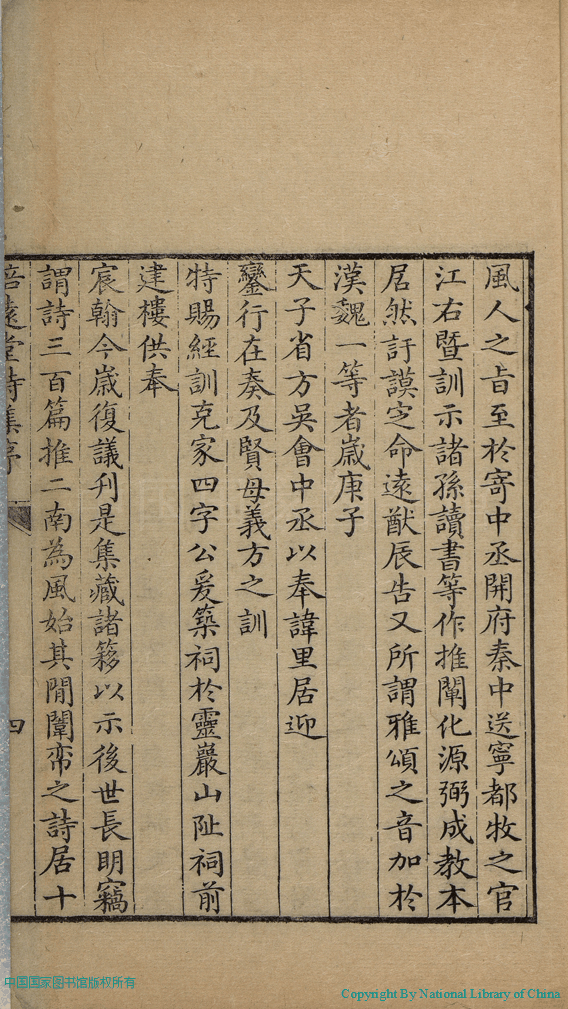 風人之旨至於寄中丞開府秦中送寧都牧之官
江右暨訓示諸孫讀書等作推闡化源弼成教本
居然訏謨定命遠猷辰告又所謂雅頌之音加於
漢魏一等者歲庚子
天子省方吳會中丞以奉諱里居迎
鑾行在奏及賢母義方之訓
特賜經訓克家四字公爰築祠於靈巖山阯祠前
建樓供奉
宸翰今歲復議刋是集藏諸簃以示後世長明竊
謂詩三百篇推二南為風始其閒闈帟之詩居十
培遠堂詩集序
四
中国国家图书馆版权所有
Copyright By National Library of China